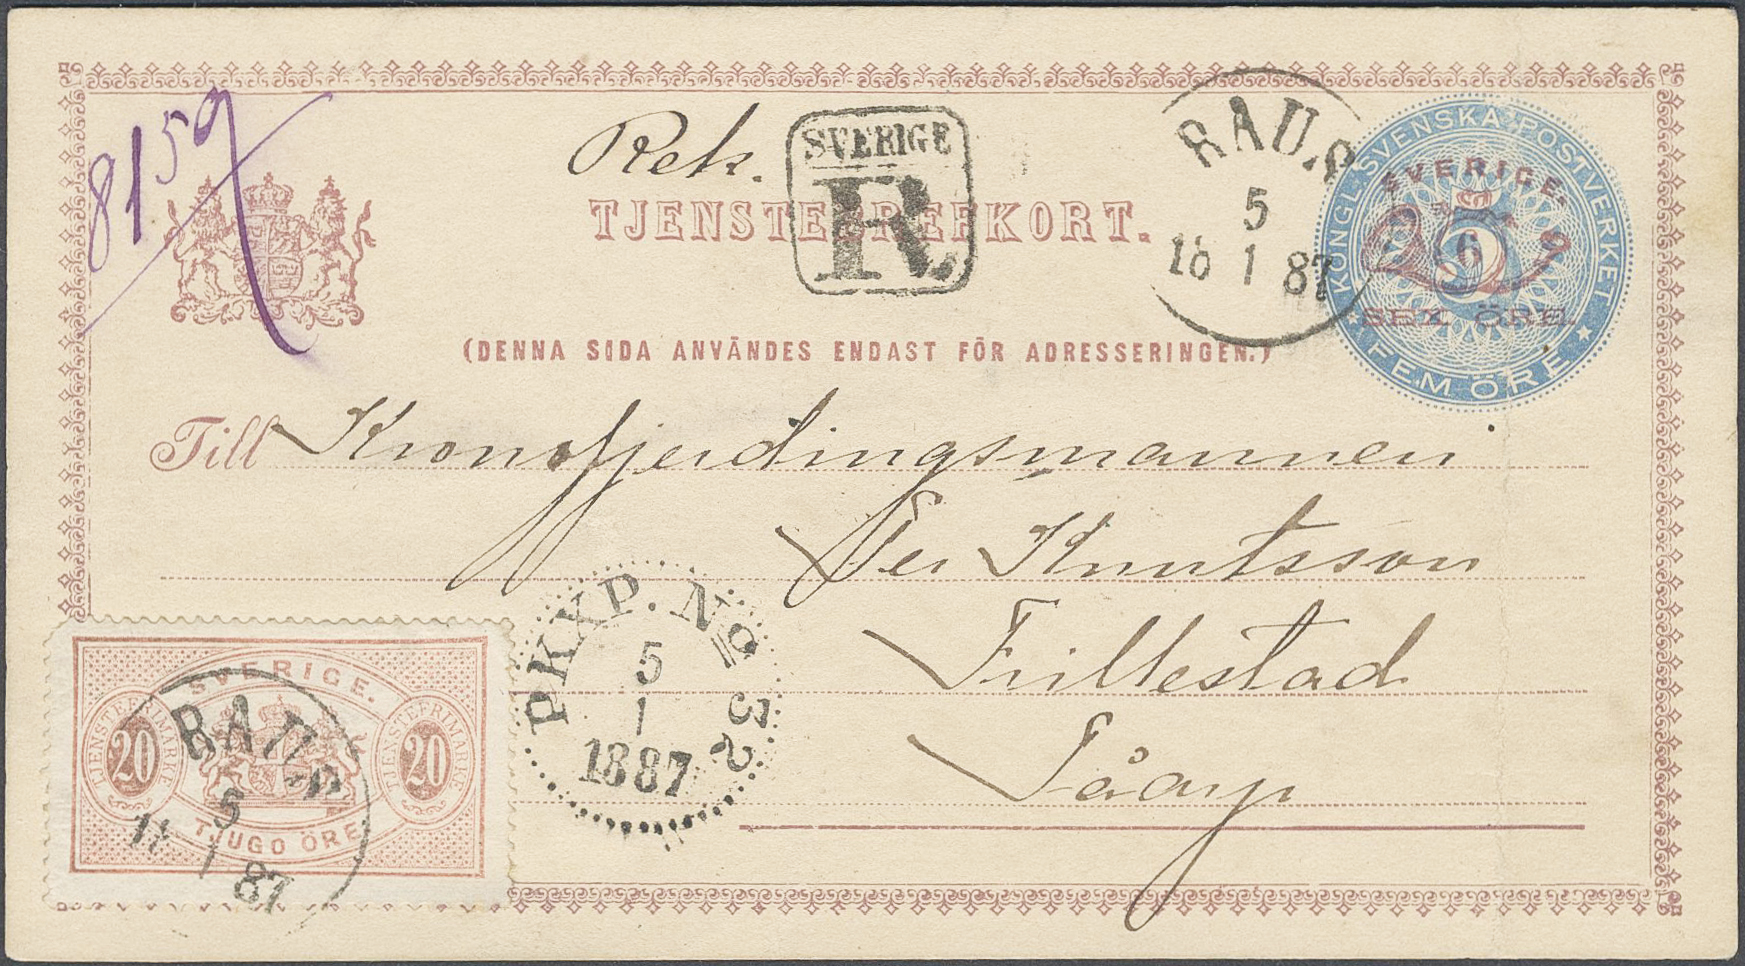 8159
Rek.
SVERIGE
R
TJENSTEBREFKORT.
RAUS
5
18 1 87
KONGL. SVENSKA POSTVERKET
SVERIGE.
5
6
SEX ÖRE.
FEM ÖRE
(DENNA SIDA ANVÄNDES ENDAST FÖR ADRESSERINGEN.)
Till Kronofjerdingsmannen
Per Knutsson
Frillestad
Tåarp
PKXP. No 32
5
1
1887
SVERIGE.
TJENSTEFRIMARKE
20
TJENSTEFRIMARKE
20
TJUGO ÖRE
RAUS
5
1
87